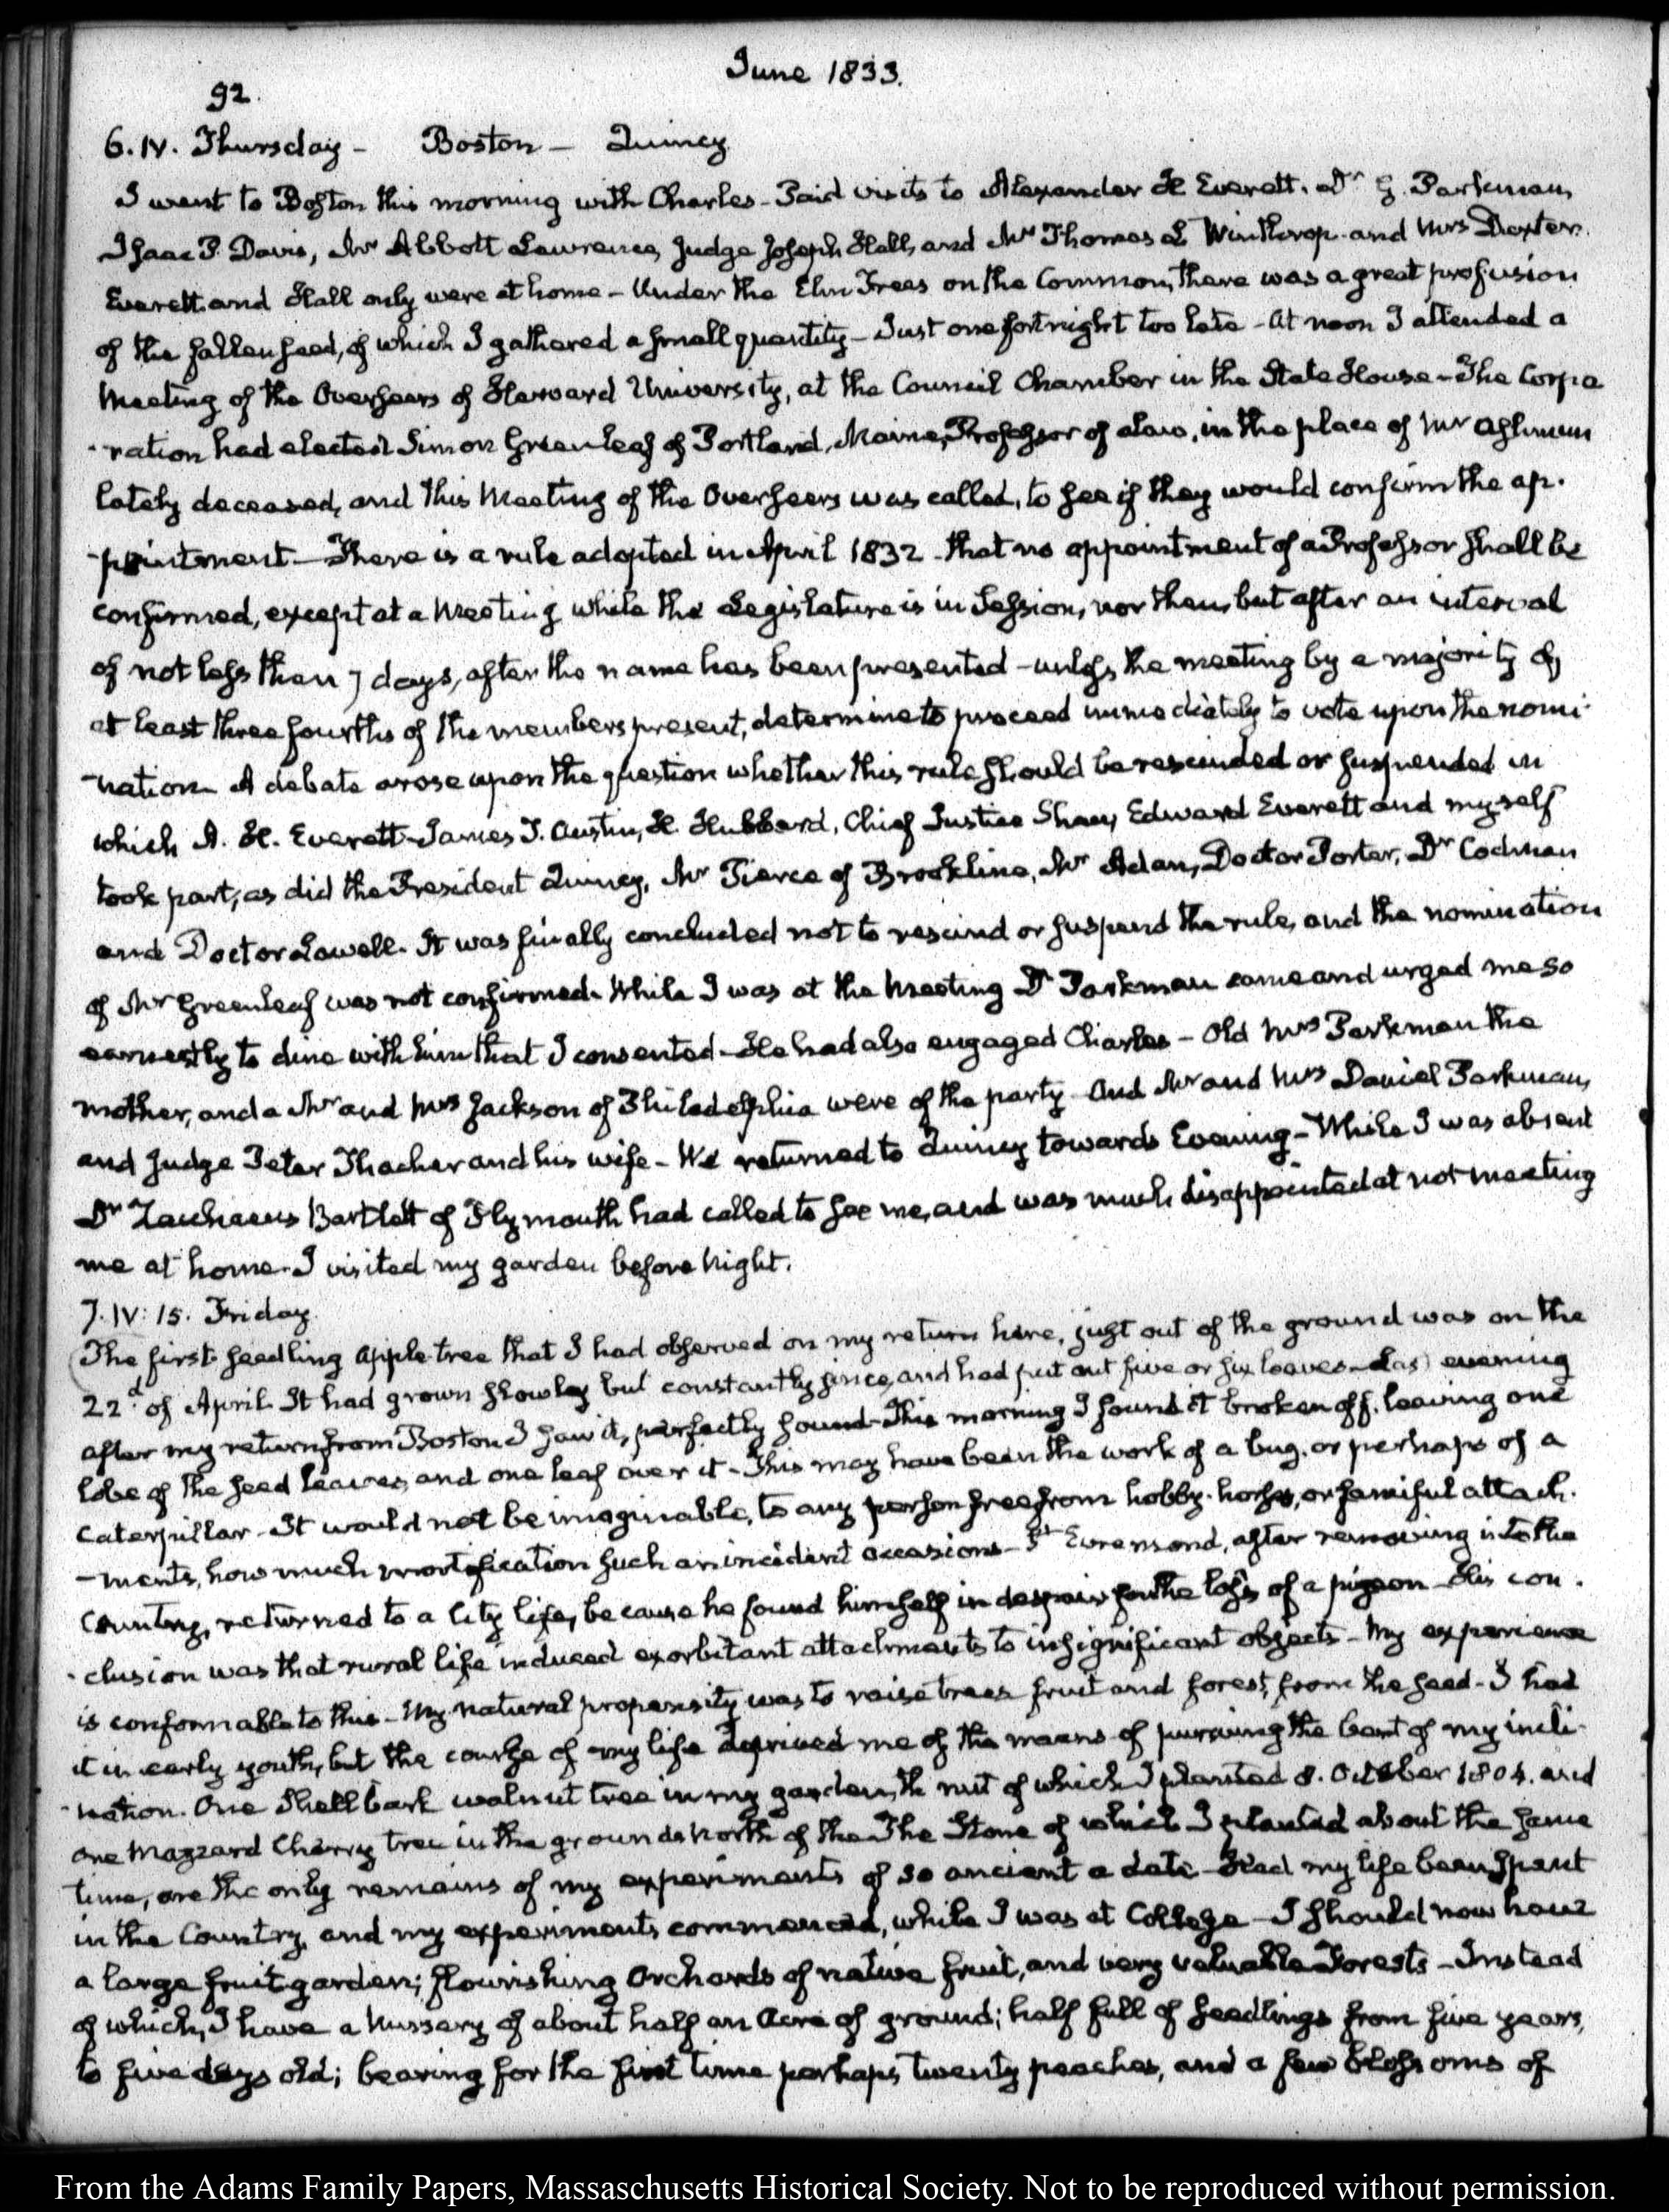 June 1833.
92.
6. IV. Thursday – Boston – Quincy
I went to Boston this morning with Charles – Paid visits to Alexander H Everett. Dr G. Parkman,
Isaac P. Davis, Mr Abbott Lawrence, Judge Joseph Hall, and Mr Thomas L Winthrop and Mrs Dexter.
Everett and Hall only were at home – Under the Elm Trees on the Common, there was a great profusion
of the fallen seed, of which I gathered a small quantity – Just one fortnight too late – At noon I attended a
Meeting of the Overseers of Harvard University, at the Council Chamber in the State House – The Corpo
-ration had elected Simon Greenleaf of Portland, Maine, Professor of Law, in the place of Mr Ashmun
lately deceased, and this Meeting of the Overseers was called, to see if they would confirm the ap-
-pointment – There is a rule adopted in April 1832 – that no appointment of a Professor shall be
confirmed, except at a Meeting while the Legislature is in Session, nor then, but after an interval
of not less than 7 days, after the name has been presented – unless the meeting by a majority of
at least three fourths of the members present, determine to proceed immediately to vote upon the nomi-
-nation – A debate arose upon the question whether this rule should be rescinded or suspended in
which A. H. Everett – James T. Austin, H. Hubbard, Chief Justice Shaw, Edward Everett and myself
took part, as did the President Quincy, Mr Pierce of Brookline, Mr Adan, Doctor Porter, Dr Codman
and Doctor Lowell. It was finally concluded not to rescind or suspend the rule, and the nomination
of Mr Greenleaf was not confirmed. While I was at the Meeting Dr Parkman came and urged me so
earnestly to dine with him that I consented – He had also engaged Charles – Old Mrs Parkman the
mother, and a Mr and Mrs Jackson of Philadelphia were of the party. And Mr and Mrs Daniel Parkman,
and Judge Peter Thacher and his wife – We returned to Quincy towards Evening – While I was absent
Dr Zaccheus Bartlett of Plymouth had called to see me, and was much disappointed at not meeting
me at home. I visited my garden before Night.
7. IV: 15. Friday.
The first seedling Apple tree that I had observed on my return here, just out of the ground was on the
22d of April. It had grown slowly but constantly since, and had put out five or six leaves – Last evening
after my return from Boston I saw it, perfectly sound – This morning I found it broken off, leaving one
lobe of the seed leaves, and one leaf over it – This may have been the work of a bug, or perhaps of a
caterpillar – It would not be imaginable, to any person free from hobby-horses, or fanciful attach-
-ments, how much mortification such an incident occasions – St Evremond, after removing into the
Country, returned to a City life, because he found himself in despair for the loss of a pigeon – His con-
-clusion was that rural life induced exorbitant attachments to insignificant objects – My experience
is conformable to this – My natural propensity was to raise trees fruit and forest, from the seed – I had
it in early youth, but the course of my life deprived me of the means of pursuing the bent of my incli-
-nation. One Shellbark walnut tree in my garden, the nut of which I planted 8. October 1804. and
one Mazzard Cherry tree in the grounds North of the The Stone of which I planted about the same
time, are the only remains of my experiments of so ancient a date – Had my life been spent
in the Country, and my experiments commenced, while I was at College – I should now have
a large fruit garden; flourishing Orchards of native fruit, and very valuable Forests – Instead
of which, I have a Nursery of about half an Acre of ground; half full of seedlings from five years,
to five days old; bearing for the first time perhaps twenty peaches, and a few blossoms of
From the Adams Family Papers, Massachusetts Historical Society. Not to be reproduced without permission.